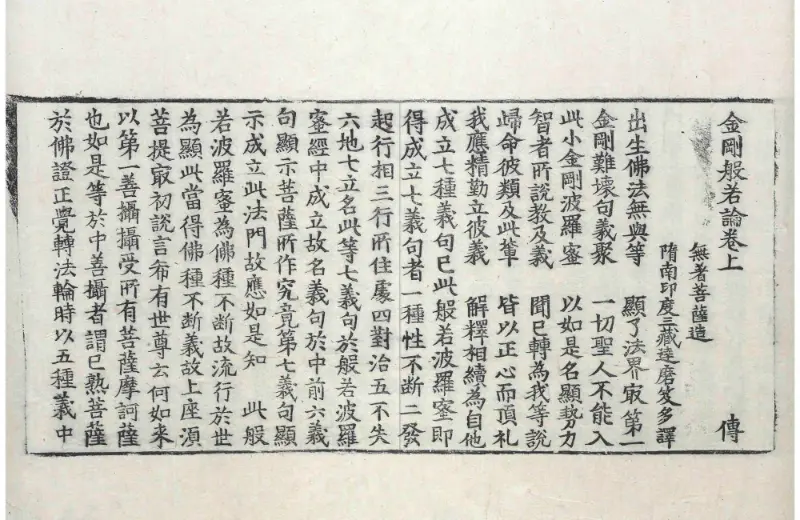 金剛般若論卷上 傳
無著菩薩造
隋南印度三藏達磨笈多譯
出生佛法無與等 顯了法界㝡第一
金剛難壞句義聚 一切聖人不能入
此小金剛波羅蜜 以如是名顯勢力
智者所說教及義 聞已轉為我等說
歸命彼類及此軰 皆以正心而頂礼
我應精勤立彼義 解釋相續為自他
成立七種義句已此般若波羅蜜即
得成立七義句者一種性不斷二發
起行相三行所住處四對治五不失
六地七立名此等七義句於般若波羅
蜜經中成立故名義句於中前六義
句顯示菩薩所作究竟第七義句顯
示成立此法門故應如是知 此般
若波羅蜜為佛種不斷故流行於世
為顯此當得佛種不斷義故上座湏
菩提㝡初說言希有世尊云何如來
以第一善攝攝受所有菩薩摩訶薩
也如是等於中善攝者謂已熟菩薩
於佛證正覺轉法輪時以五種義中